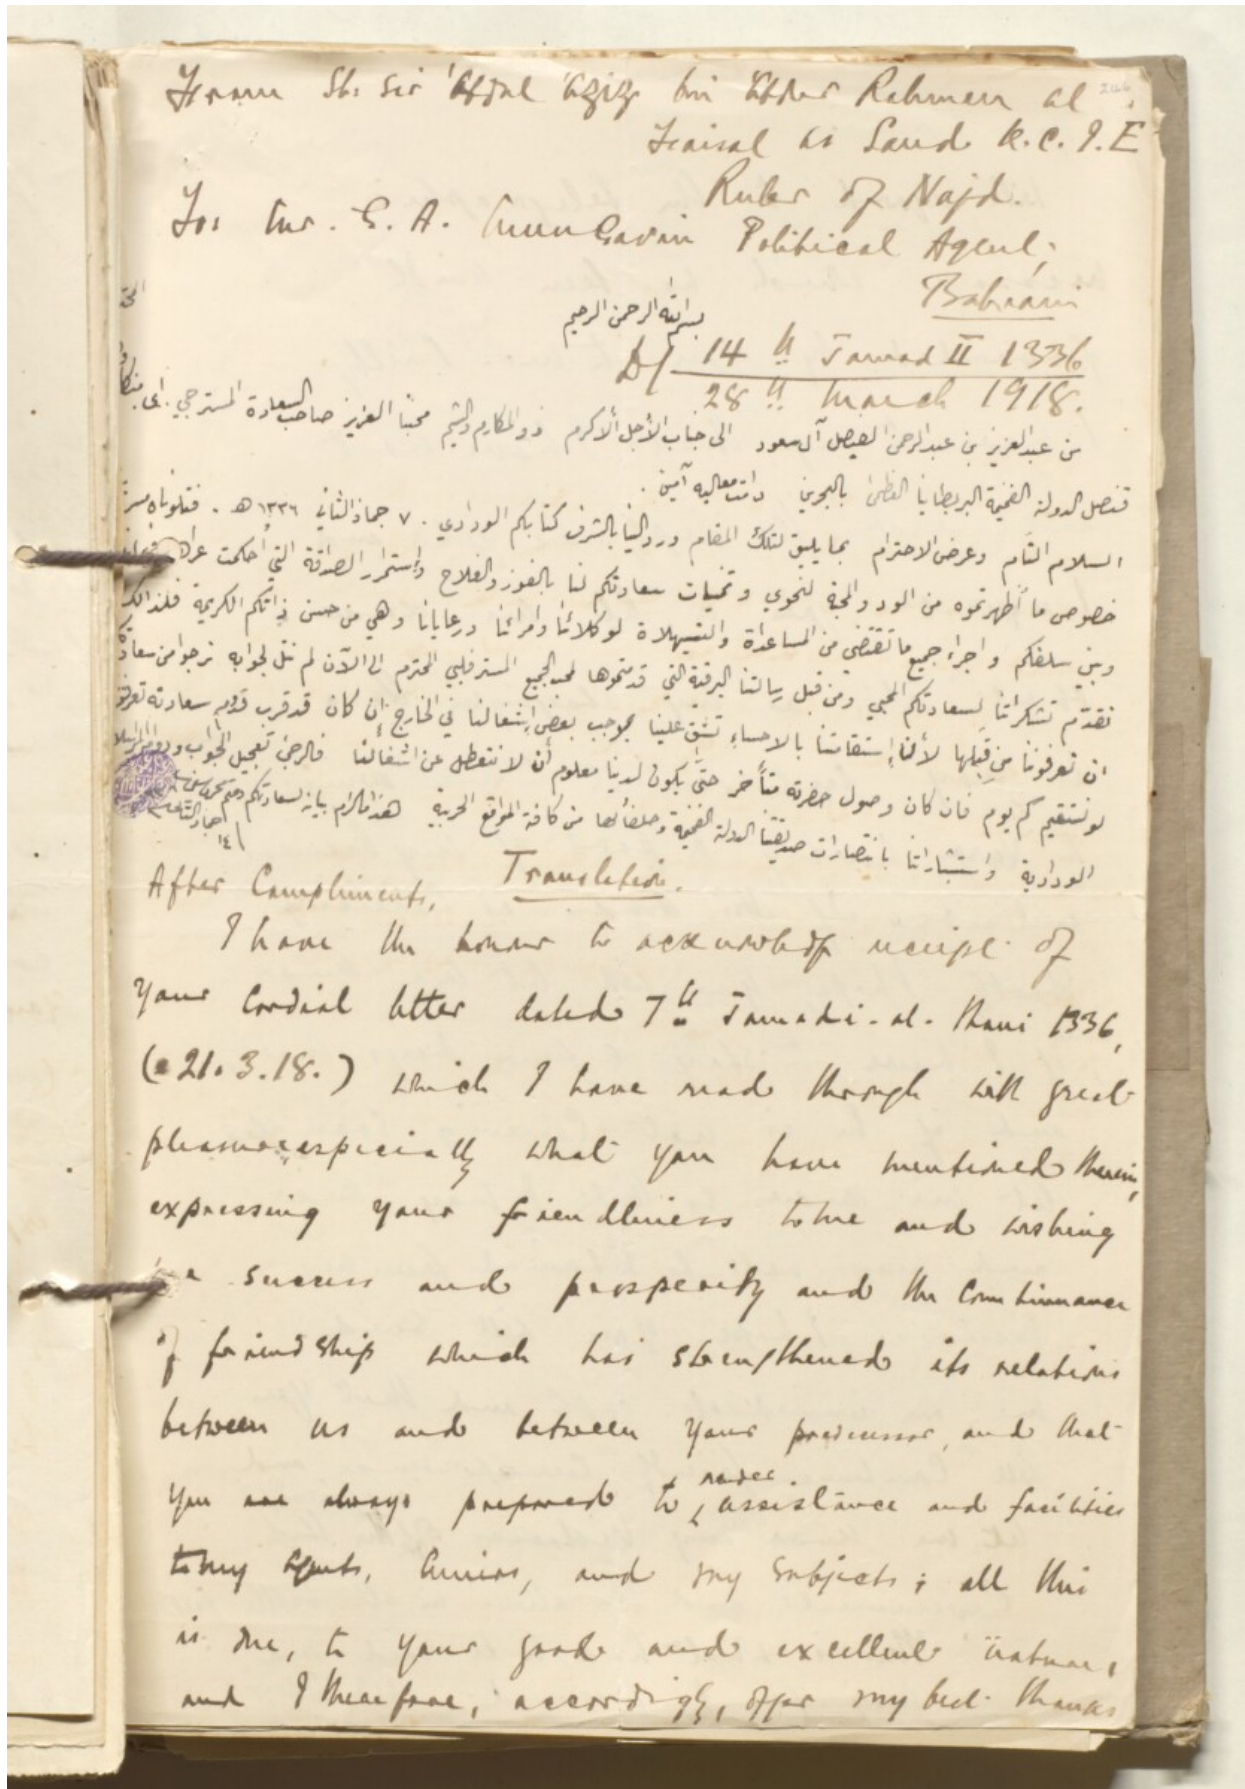 From Sh: Sir 'Abdul 'Aziz bin 'Abdur Rahman al
Faisal as Saud K.C.I.E
Ruler of Najd.
To: Mr. G. A. Mungavin Political Agent,
Bahrain
بسم الله الرحمن الرحيم
D/ 14th Jamad II 1336
28th March 1918.
من عبد العزيز بن عبد الرحمن الفيصل آل سعود الى جناب الأجل الأكرم ذو المكارم والشيم محبنا العزيز صاحب السعادة المستر جي. اى.
قنصل الدولة الفخيمة البريطانيا العظمى بالبحرين دامت معاليه آمين.
السلام التام وعرض الاحترام بما يليق لتلك المقام ورد الينا بالشرف كتابكم الودادي. ٧ جماد الثاني ١٣٣٦ هـ. فتلوناه
خصوص ما أظهرتموه من الود والمحبة لنحوي وتمنيات سعادتكم لنا بالفوز والفلاح واستمرار الصداقة التي أحكمت
وبين سلفكم واجراء جميع ما تقتضي من المساعدة والتسهيلاة لوكلائنا وامرائنا ورعايانا وهي من حسن ذاتكم الكريمة فلذالك
نقدّم تشكراتنا لسعادتكم المحبي ومن قبل رسالتنا البرقية التي قدمتموها لمحب الجميع المستر فلبي المحترم الى الآن لم نتل لجوابه نرجوا من سعادتكم
ان تعرفونا من قبلها لأننا إستقامتنا بالاحساء تشق علينا بموجب بعض إشغالنا في الخارج إن كان قد قرب قدوم سعادته
لو نستقيم كم يوم فان كان وصول حضرته متأخر حتى يكون لدينا معلوم أن لا نتعطل عن اشغالنا فالرجى تعجيل الجواب
الودادية واستبشاراتنا بانتصارات صديقتنا الدولة الفخيمة وحلفائها من كافة المواقع الحربية هذا مالزم بيانه لسعادتكم
١٤
Translation.
After Compliments,
I have the honour to acknowledge receipt of
your cordial letter dated 7th Jamadi-al-Thani 1336,
(21.3.18.) which I have read through with great
pleasure especially what you have mentioned therein,
expressing your friendliness to me and wishing
success and prosperity and the continuance
of friendship which has strengthened its relations
between us and between your predecessor, and that
you are always prepared to render assistance and facilities
to my agents, Amirs, and my subjects; all this
is due, to your good and excellent nature,
and I therefore, accordingly, offer my best thanks